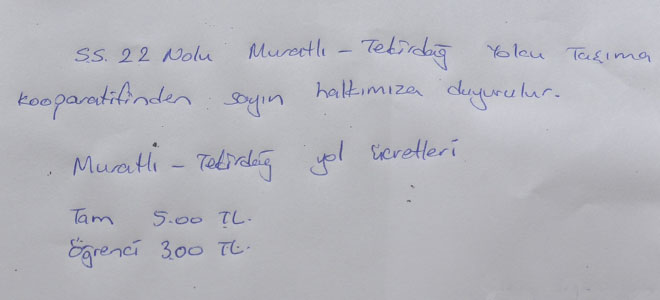 S.S. 22 Nolu Muratlı - Tekirdağ Yolcu Taşıma
kooparatifinden sayın halkımıza duyurulur.
Muratlı - Tekirdağ yol ücretleri
Tam 5.00 TL.
Öğrenci 3.00 TL.